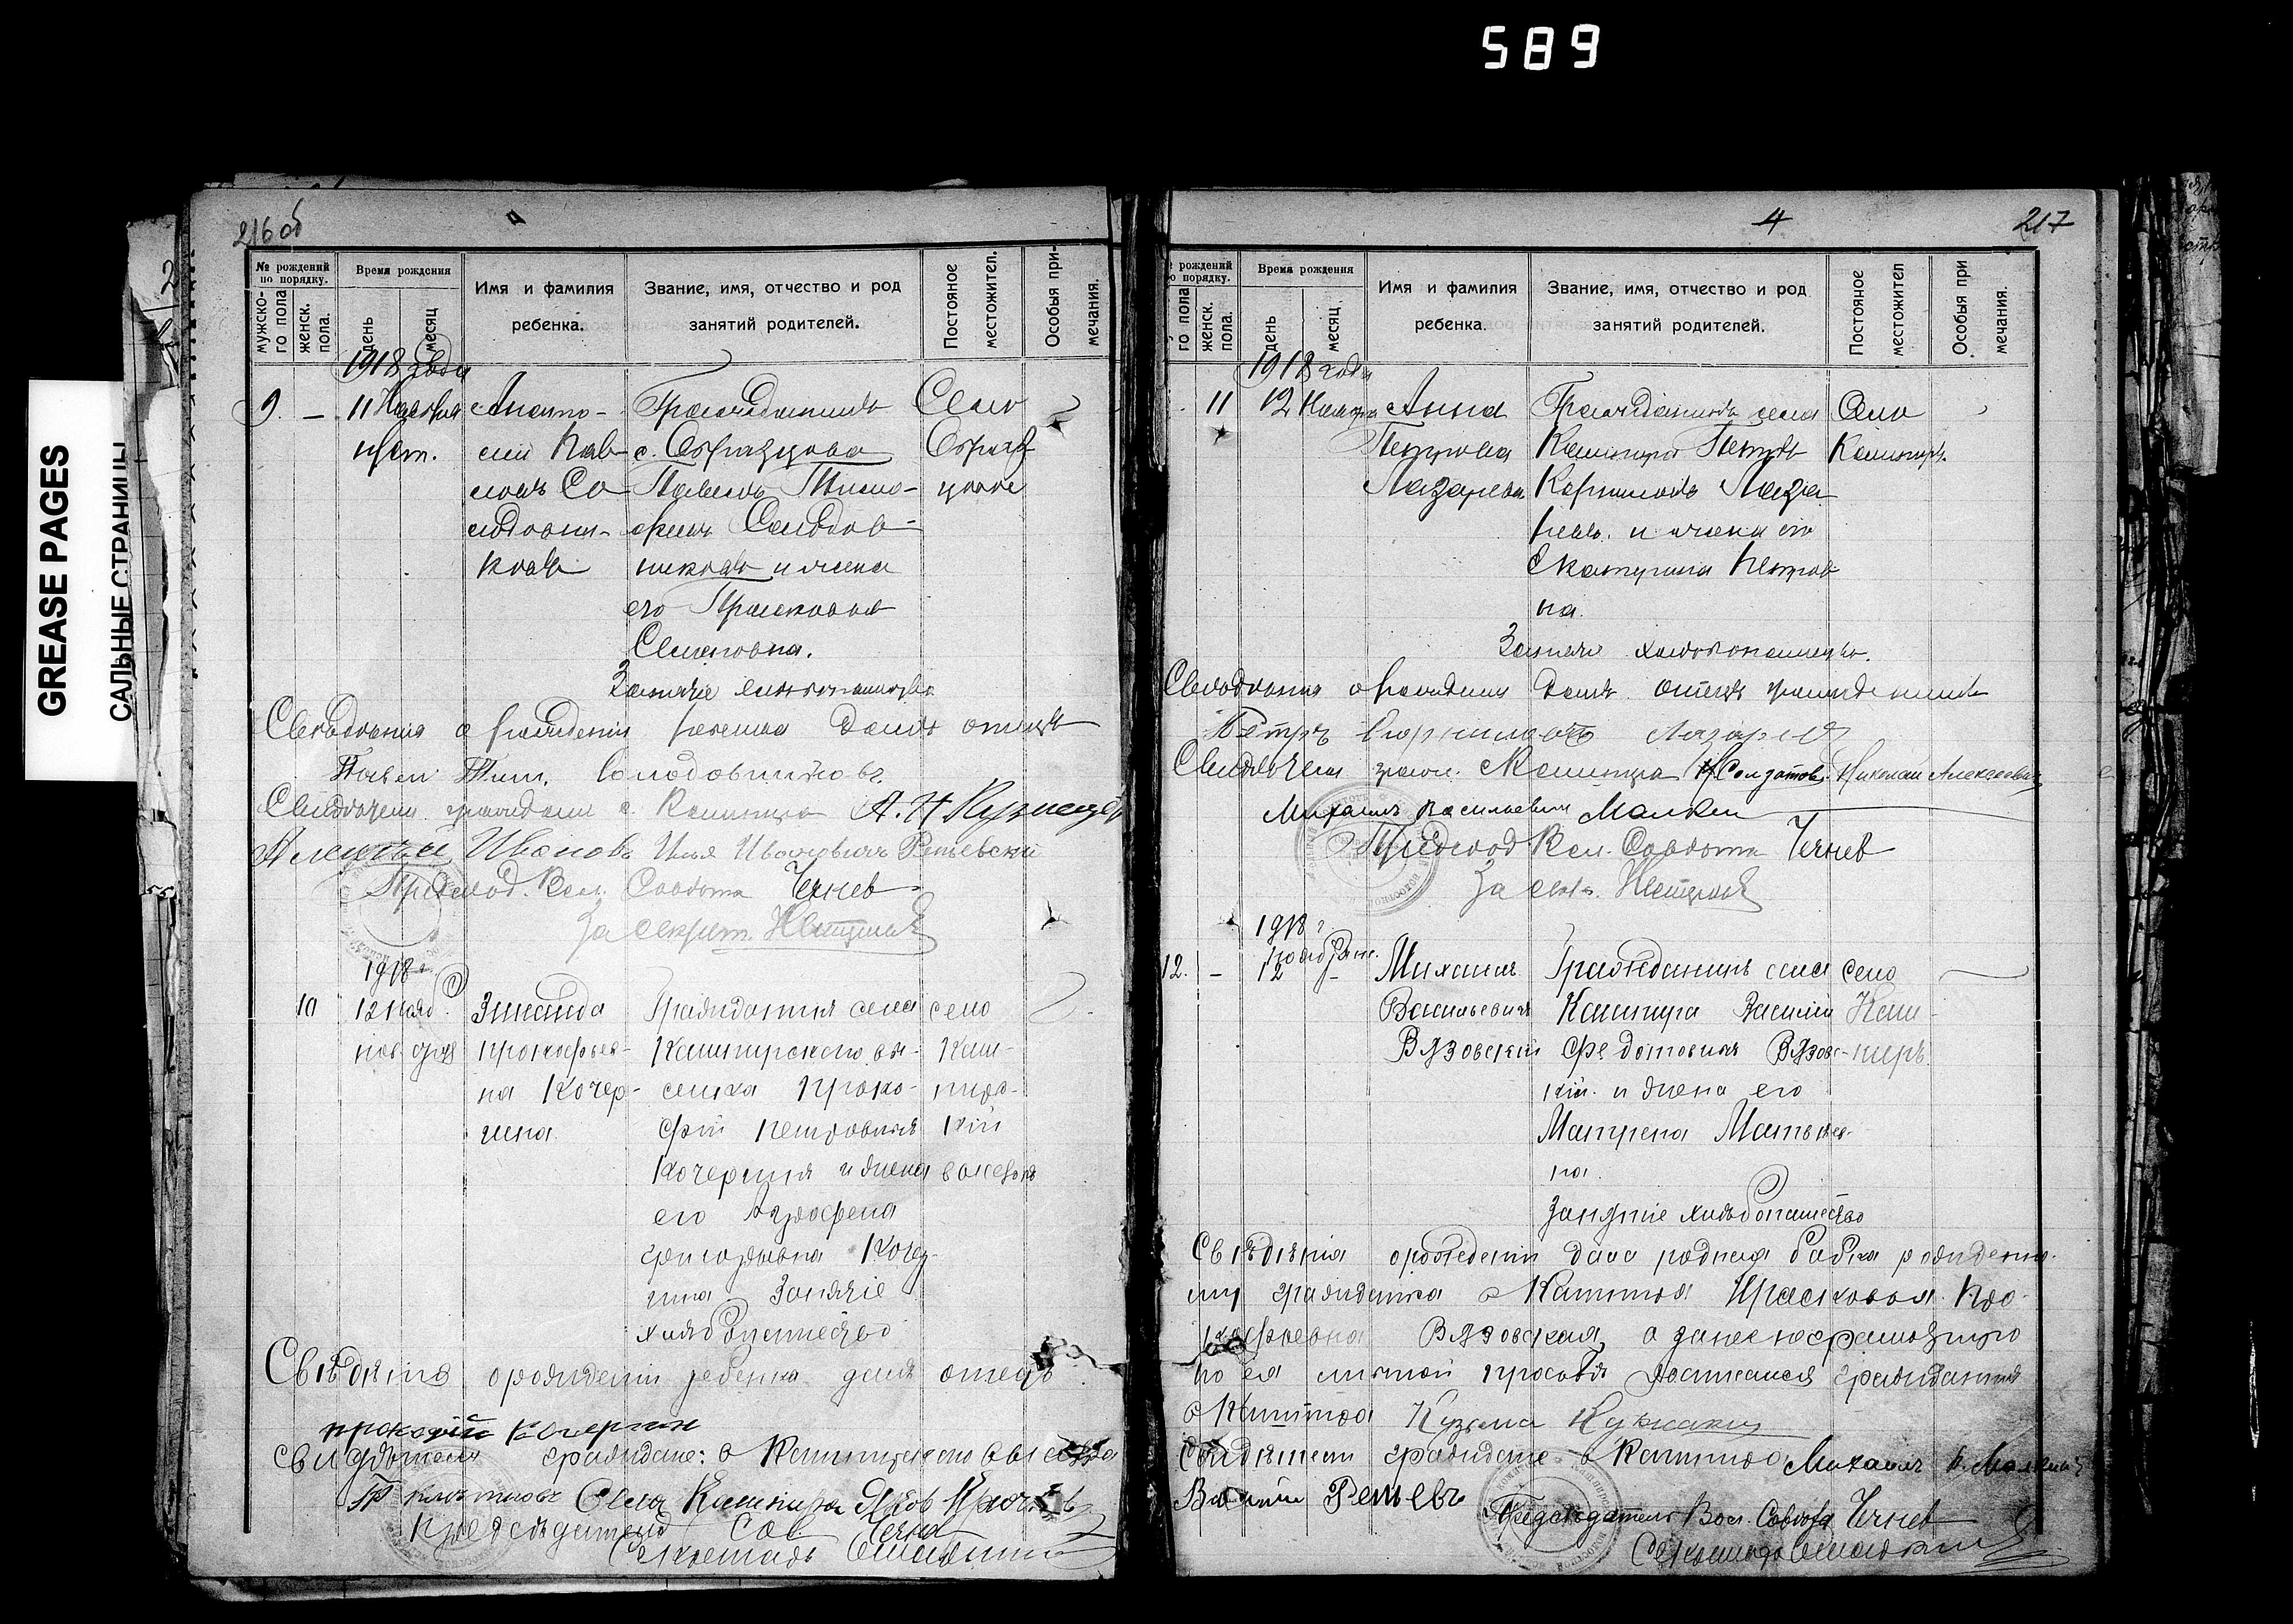 589
GREASE PAGES
САЛЬНЫЕ СТРАНИЦЫ
216 об
№ рождений по порядку.
мужско-го пола
женск. пола.
Время рождения
день
месяц
Имя и фамилия ребенка.
Звание, имя, отчество и род занятий родителей.
Постояное местожител.
Особыя при-мечания.
1918 года
9. — 11 Ноября
н/ст.
Павловъ Со
лодовни-
ковъ
Гражданинъ
с. Образцова
Павелъ Тимо-
фѣевъ Солодов-
никовъ и жена
его Прасковья
Семеновна.
Занятіе хлѣбопашество
Село
Образ
цово
Свѣдѣнія о рожденіи ребенка далъ отецъ
Павел Тим. Солодовниковъ.
Свидѣтели граждане с. Кашпира А. Н Кузнецов
Алексѣй Ивановъ Илья Ивановичъ Ретевский
Предсѣд. Вол. Совѣта Чернев
За секрет.
1918 г.
10 12 нояб.
нов.
Зинаида
Прокофьев-
на Кочер-
гина
Гражданинъ села
Кашпирского вы-
селка Проко-
фій Петровичъ
Кочергинъ и жена
его Агрофена
Григорьевна Кочер-
гина Занятіе
хлѣбопашество
село
Каш-
пирс-
кій
выселокъ
Свѣдѣнія о рожденіи ребенка далъ отецъ
Прокофий Кочергин
Свидѣтели граждане: с Кашпирского выселка
Села Кашпира Яков
Председатель Сов. Чернев
Секретарь
4
217
№ рождений по порядку.
го пола
женск. пола.
Время рождения
день
месяц
Имя и фамилия ребенка.
Звание, имя, отчество и род занятий родителей.
Постояное местожител
Особыя при мечания.
1918 года
11 12 Ноября
Анна
Петрова
Лазарева
Гражданинъ села
Кашпира Петръ
Корниловъ Лаза
ревъ. и жена его
Екатерина Петров
на.
Занятіе хлѣбопашество.
Село
Кашпиръ.
Свѣдѣнія о рожденіи далъ отецъ гражданинъ
Петръ Корниловъ Лазарев
Свидѣтели гражд. с Кашпира Н Солдатов. Николай Алексеевич
Михаилъ Васильевич Малкин
Предсѣд Вол. Совѣта Чернев
За секр.
1918 г
ноября н.
12. — 12
Михаилъ
Васильевичъ
Вязовский
Гражданинъ села
Кашпира Василий
Федотовичъ Вязовс-
кій. и жена его
Матрена Матвеев-
на.
Занятие хлѣбопашество
село
Каш-
пиръ
Свѣдѣнія о рождении дала родная бабка рожденно-
му гражданка с Кашпира Прасковья Про-
кофьевна Вязовская, а за нее неграмотную
по ея личной просьбѣ росписался гражданинъ
с Кашпира Кузьма
Свидѣтели граждане с Кашпира Михаилъ В. Малкинъ
Василий Ретьевъ
Председатель Вол. Совѣта Чернев
Секретарь